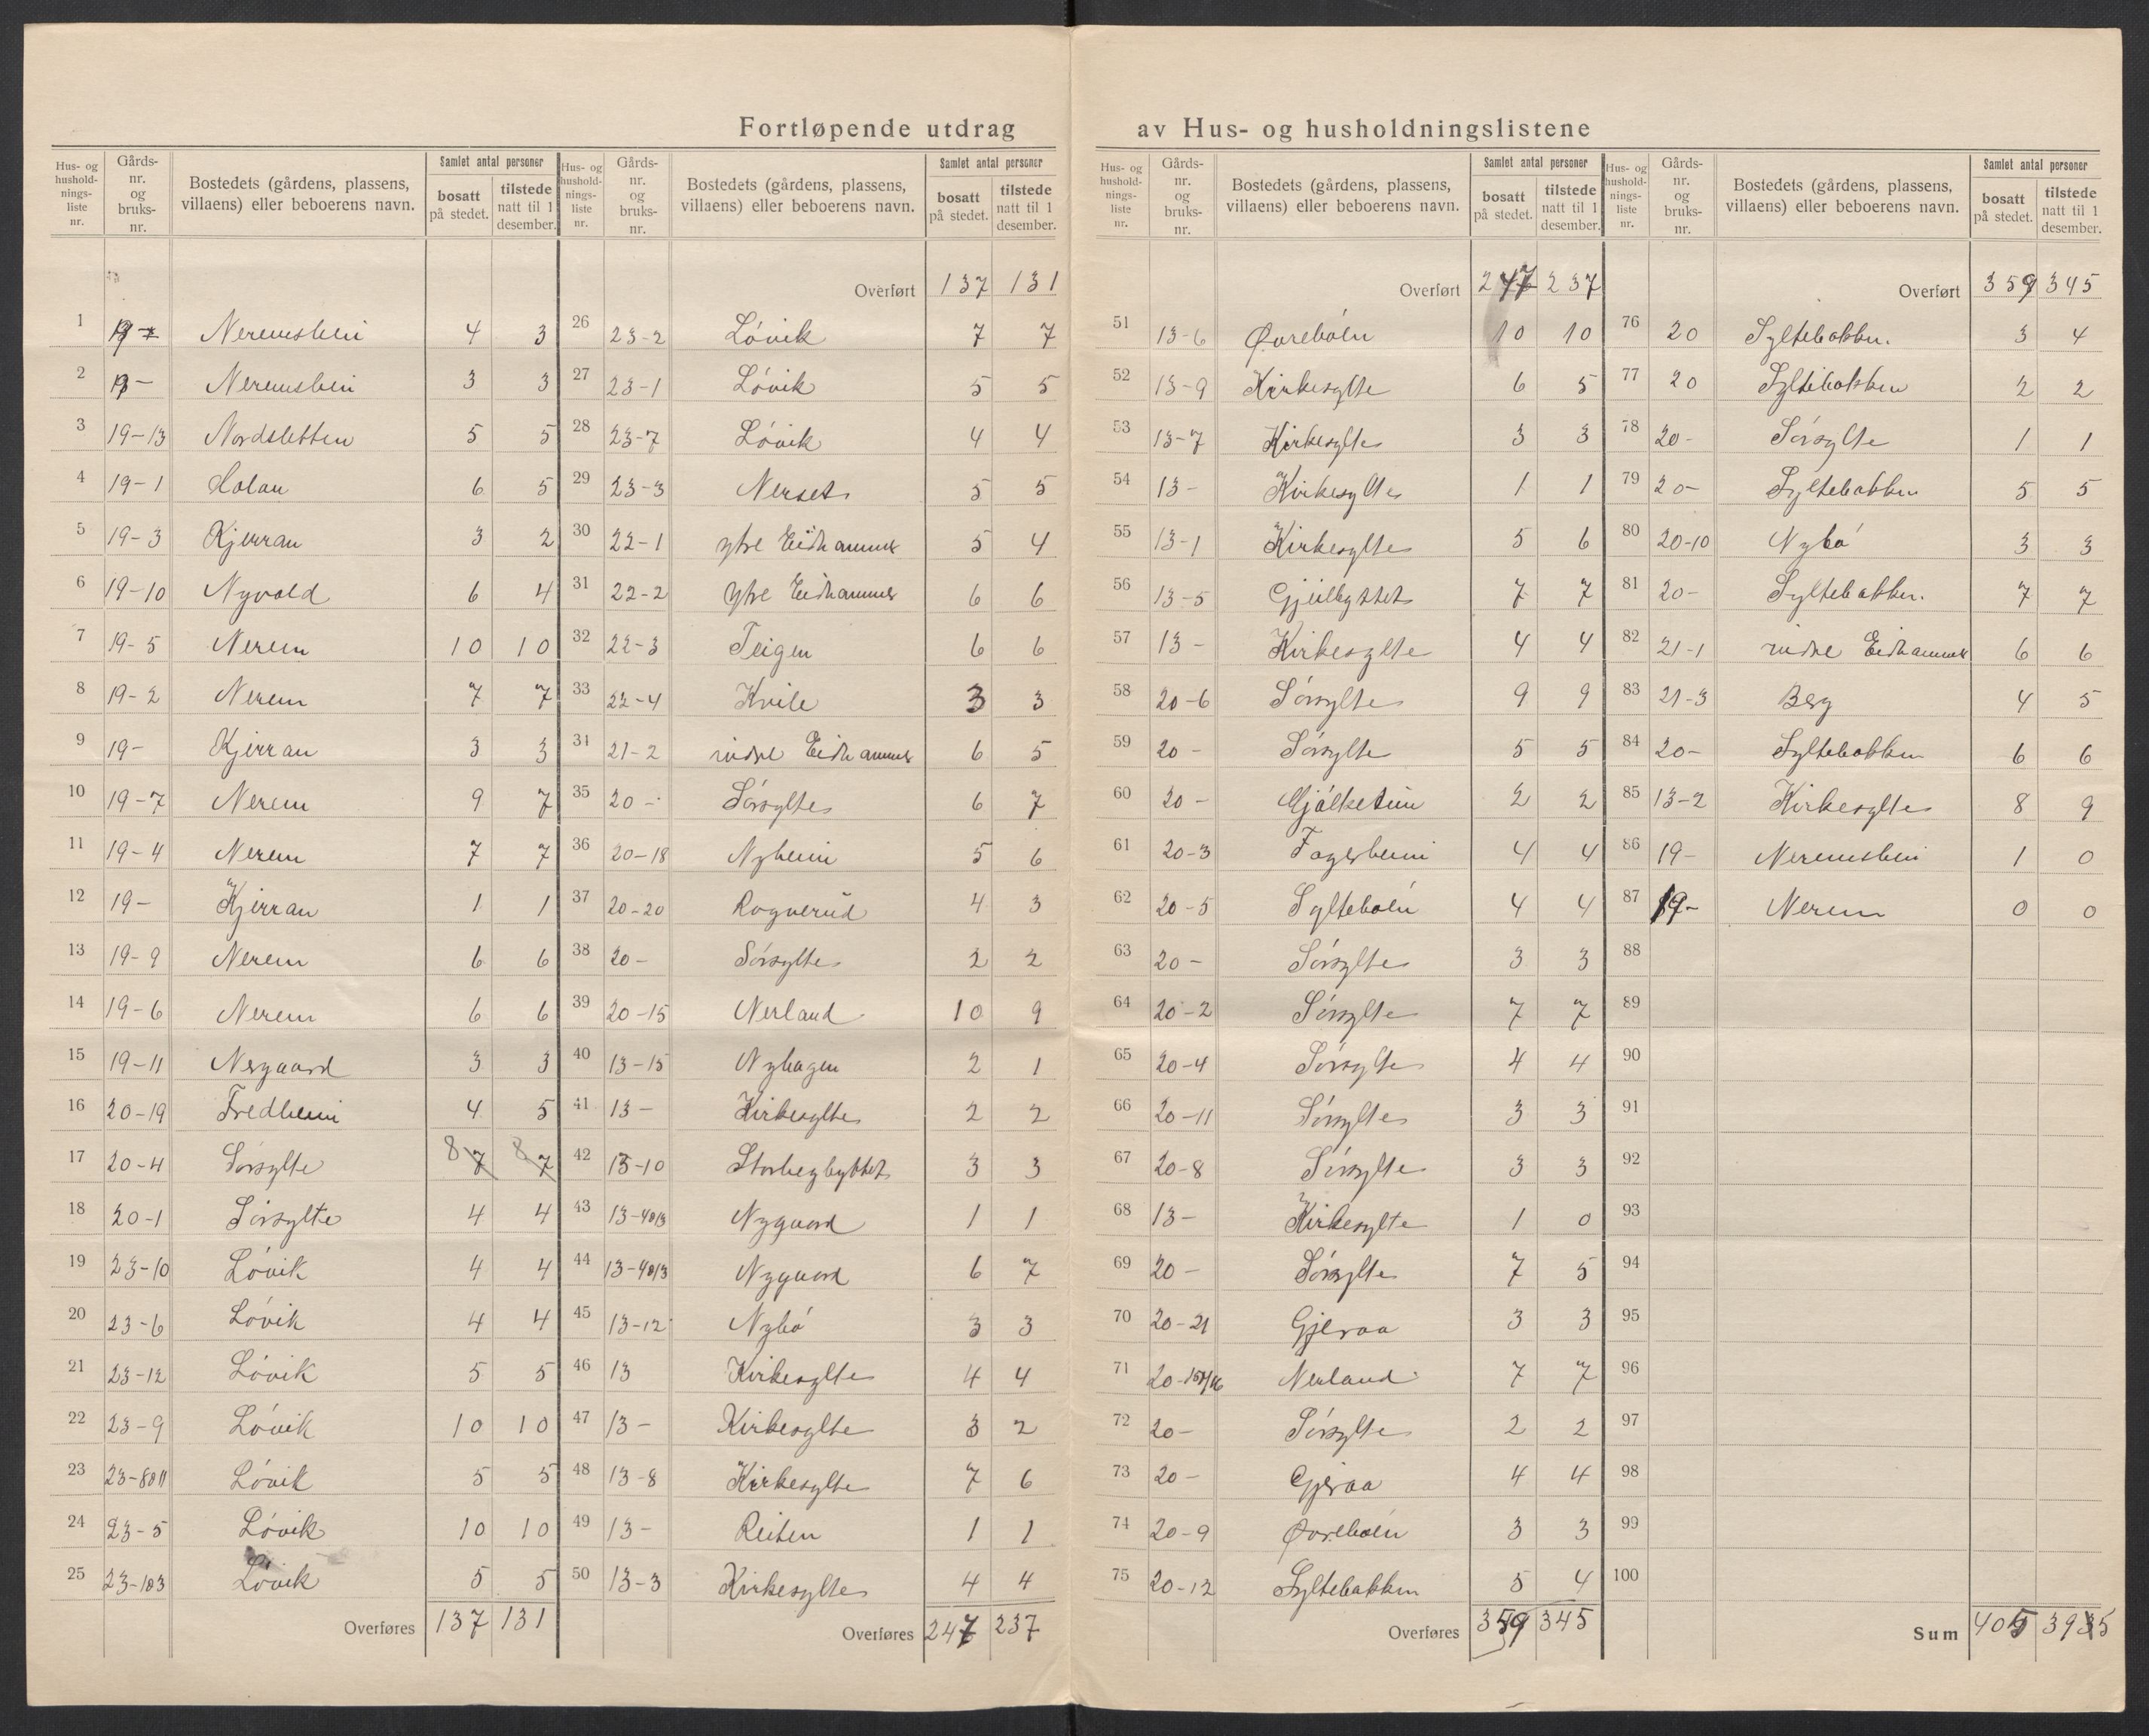 Fortløpende utdrag av Hus- og husholdningslistene
Hus- og husholdnings-liste nr. | Gårds-nr. og bruks-nr. | Bostedets (gårdens, plassens, villaens) eller beboerens navn. | Samlet antal personer | bosatt på stedet. | tilstede natt til 1 desember.
1 19- Neremsheim 4 3
2 19- Neremsheim 3 3
3 19-13 Nordsletten 5 5
4 19-1 Holan 6 5
5 19-3 Kjerran 3 2
6 19-10 Nyvold 6 4
7 19-5 Nerem 10 10
8 19-2 Nerem 7 7
9 19- Kjerran 3 3
10 19-7 Nerem 9 7
11 19-4 Nerem 7 7
12 19- Kjerran 1 1
13 19-9 Nerem 6 6
14 19-6 Nerem 6 6
15 19-11 Nergaard 3 3
16 20-19 Fredheim 4 5
17 20-4 Sørsylte 8 7 8 7
18 20-1 Sørsylte 4 4
19 23-10 Løvik 4 4
20 23-6 Løvik 4 4
21 23-12 Løvik 5 5
22 23-9 Løvik 10 10
23 23-8011 Løvik 5 5
24 23-5 Løvik 10 10
25 23-103 Løvik 5 5
Overføres 137 131
Hus- og husholdnings-liste nr. | Gårds-nr. og bruks-nr. | Bostedets (gårdens, plassens, villaens) eller beboerens navn. | Samlet antal personer | bosatt på stedet. | tilstede natt til 1 desember.
Overført 137 131
26 23-2 Løvik 7 7
27 23-1 Løvik 5 5
28 23-7 Løvik 4 4
29 23-3 Nerset 5 5
30 22-1 ytre Eidhammer 5 4
31 22-2 Ytre Eidhammer 6 6
32 22-3 Teigen 6 6
33 22-4 Kvile 3 3
34 21-2 indre Eidhammer 6 5
35 20- Sørsylte 6 7
36 20-18 Nyheim 5 6
37 20-20 Rognerud 4 3
38 20- Sørsylte 2 2
39 20-15 Nerland 10 9
40 13-15 Nyhagen 2 1
41 13- Kirkesylte 2 2
42 13-10 Storhegbyttet 3 3
43 13-4013 Nygaard 1 1
44 13-4013 Nygaard 6 7
45 13-12 Nybø 3 3
46 13 Kirkesylte 4 4
47 13- Kirkesylte 3 2
48 13-8 Kirkesylte 7 6
49 13- Reiten 1 1
50 13-3 Kirkesylte 4 4
Overføres 247 237
Hus- og husholdnings-liste nr. | Gårds-nr. og bruks-nr. | Bostedets (gårdens, plassens, villaens) eller beboerens navn. | Samlet antal personer | bosatt på stedet. | tilstede natt til 1 desember.
Overført 247 237
51 13-6 Øvrebøen 10 10
52 13-9 Kirkesylte 6 5
53 13-7 Kirkesylte 3 3
54 13- Kirkesylte 1 1
55 13-1 Kirkesylte 5 6
56 13-5 Gjeilbyttet 7 7
57 13- Kirkesylte 4 4
58 20-6 Sørsylte 9 9
59 20- Sørsylte 5 5
60 20- Mjølketun 2 2
61 20-3 Fagerheim 4 4
62 20-5 Syltebøen 4 4
63 20- Sørsylte 3 3
64 20-2 Sørsylte 7 7
65 20-4 Sørsylte 4 4
66 20-11 Sørsylte 3 3
67 20-8 Sørsylte 3 3
68 13- Kirkesylte 1 0
69 20- Sørsylte 7 5
70 20-21 Gjeraa 3 3
71 20- Nerland 7 7
72 20- Sørsylte 2 2
73 20- Gjeraa 4 4
74 20-9 Øvrebøen 3 3
75 20-12 Syltebakken 5 4
Overføres 359 345
Hus- og husholdnings-liste nr. | Gårds-nr. og bruks-nr. | Bostedets (gårdens, plassens, villaens) eller beboerens navn. | Samlet antal personer | bosatt på stedet. | tilstede natt til 1 desember.
Overført 359 345
76 20 Syltebakken. 3 4
77 20 Syltebakken 2 2
78 20- Sørsylte 1 1
79 20- Syltebakken 5 5
80 20-10 Nybø 3 3
81 20- Syltebakken. 7 7
82 21-1 indre Eidhammer 6 6
83 21-3 Berg 4 5
84 20- Syltebakken 6 6
85 13-2 Kirkesylte 8 9
86 19- Neremsheim 1 0
87 19- Nerem 0 0
88
89
90
91
92
93
94
95
96
97
98
99
100
Sum 405 3935